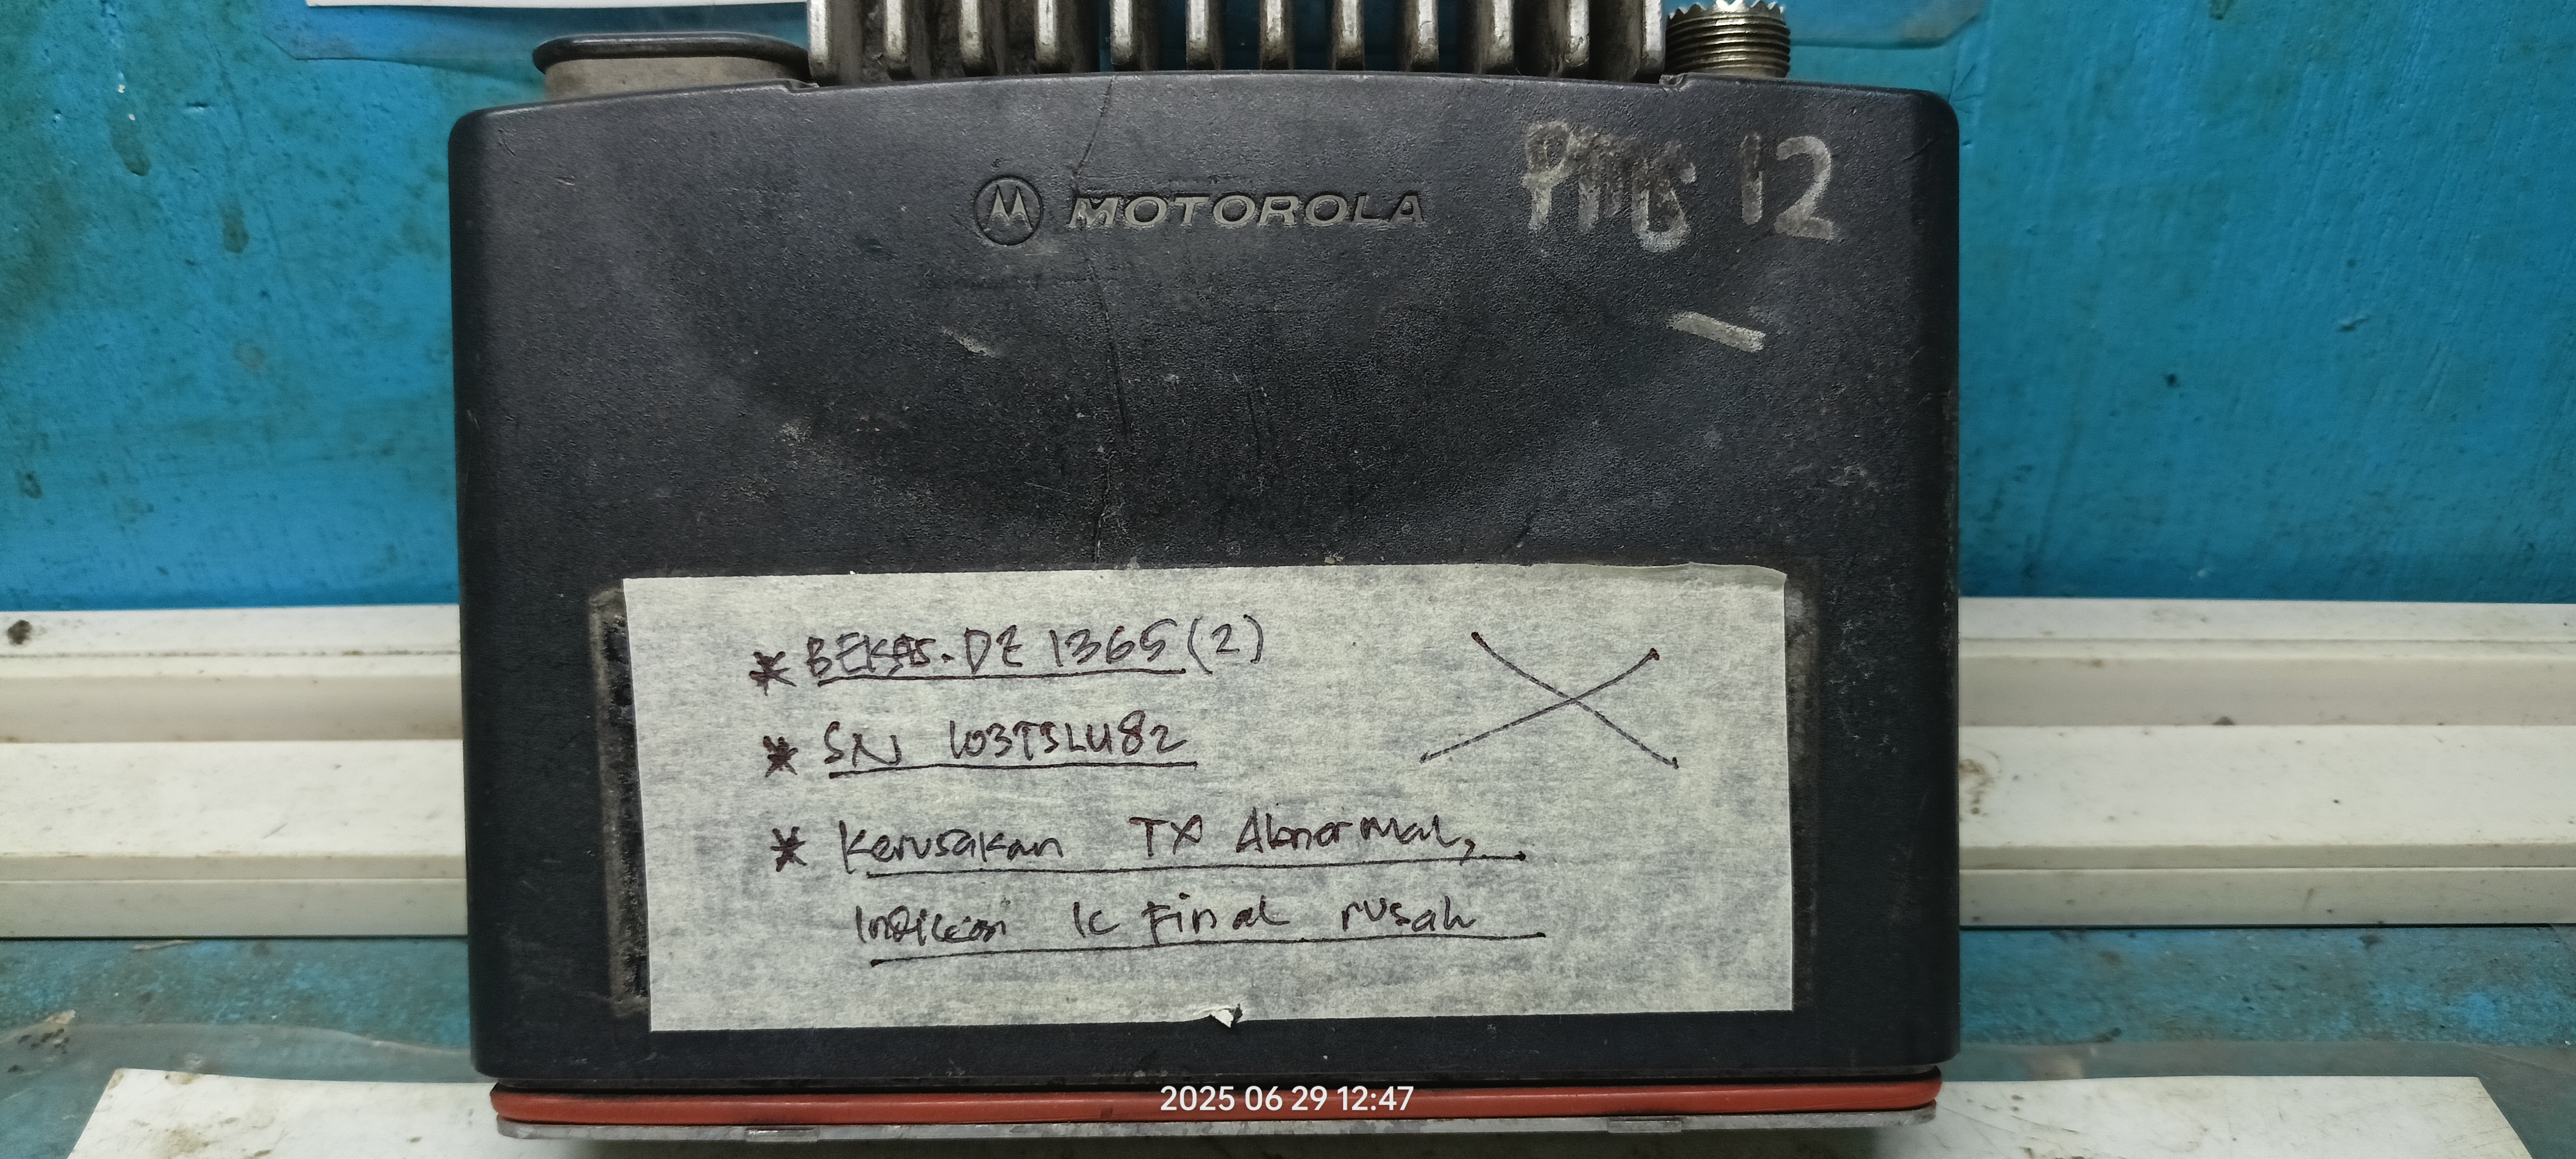 MOTOROLA
PMG 12
* BEKAS. DZ 1365 (2)
* SN 103TSLU82
* Kerusakan TX Abnormal,
Indikasi IC Final rusak
2025 06 29 12:47